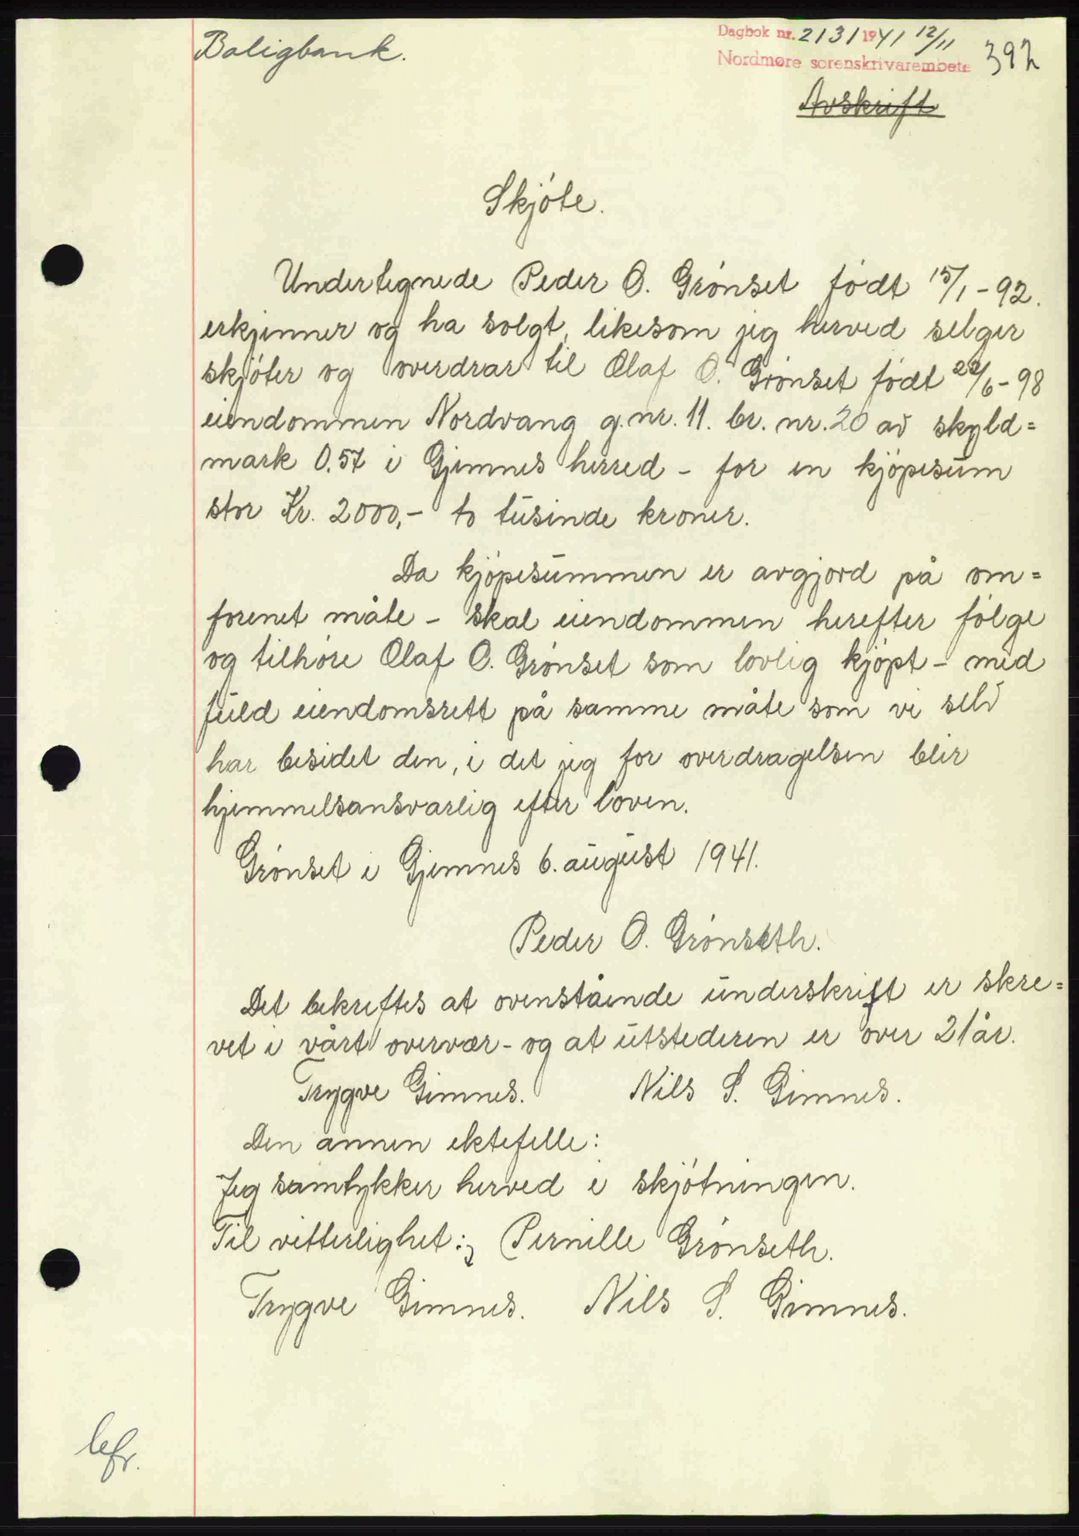 Boligbank.
Dagbok nr. 2131 1941 12/11
Nordmøre sorenskrivarembete
392
Avskrift
Skjóte.
Undertegnede Peder O. Grónset fódt 15/1-92.
erkjenner og ha solgt, likesom jeg herved selger
skjóter og overdrar til Olaf O. Grónset fódt 22/6-98
eiendommen Nordvang g.nr. 11. br. nr. 20 av skyld=
mark 0.57 i Gjemnes herred - for en kjöpesum
stor Kr. 2000,- to tusinde kroner.
Da kjöpesummen er avgjord på om=
forenet måte - skal eiendommen herefter fólge
og tilhóre Olaf O. Grónset som lovlig kjópt - med
fuld eiendomsrett på samme måte som vi selv
har besidet den, i det jeg for overdragelsen blir
hjemmelsansvarlig efter loven.
Grónset i Gjemnes 6. august 1941.
Peder O. Grónseth.
Det bekreftes at ovenstående underskrift er skre=
vet i vårt overvær - og at utstederen er over 21 år.
Trygve Gimnes. Nils S. Gimnes.
Den annen ektefelle:
Jeg samtykker herved i skjótningen.
Til vitterlighet:; Pernille Grónseth.
Trygve Gimnes. Nils S. Gimnes.